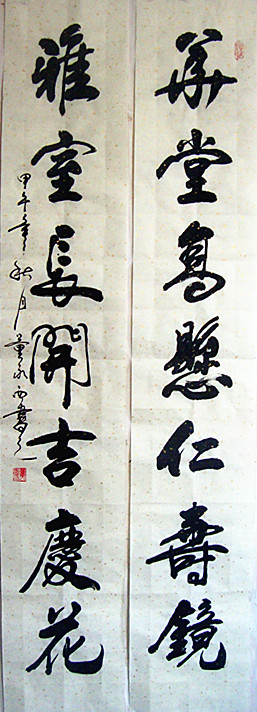 華堂高懸仁壽鏡
雅室長開吉慶花
甲午年秋月董永西書